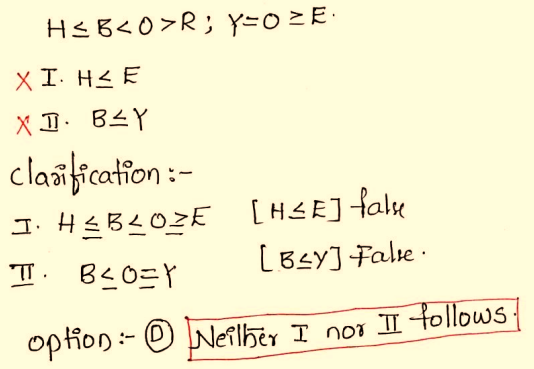 H≤B<O>R; Y=O≥E.
X I. H≤E
X II. B≤Y
Clarification:-
I. H≤B≤O≥E [H≤E] false
II. B≤O=Y [B≤Y] False.
option:- (D) Neither I nor II follows.